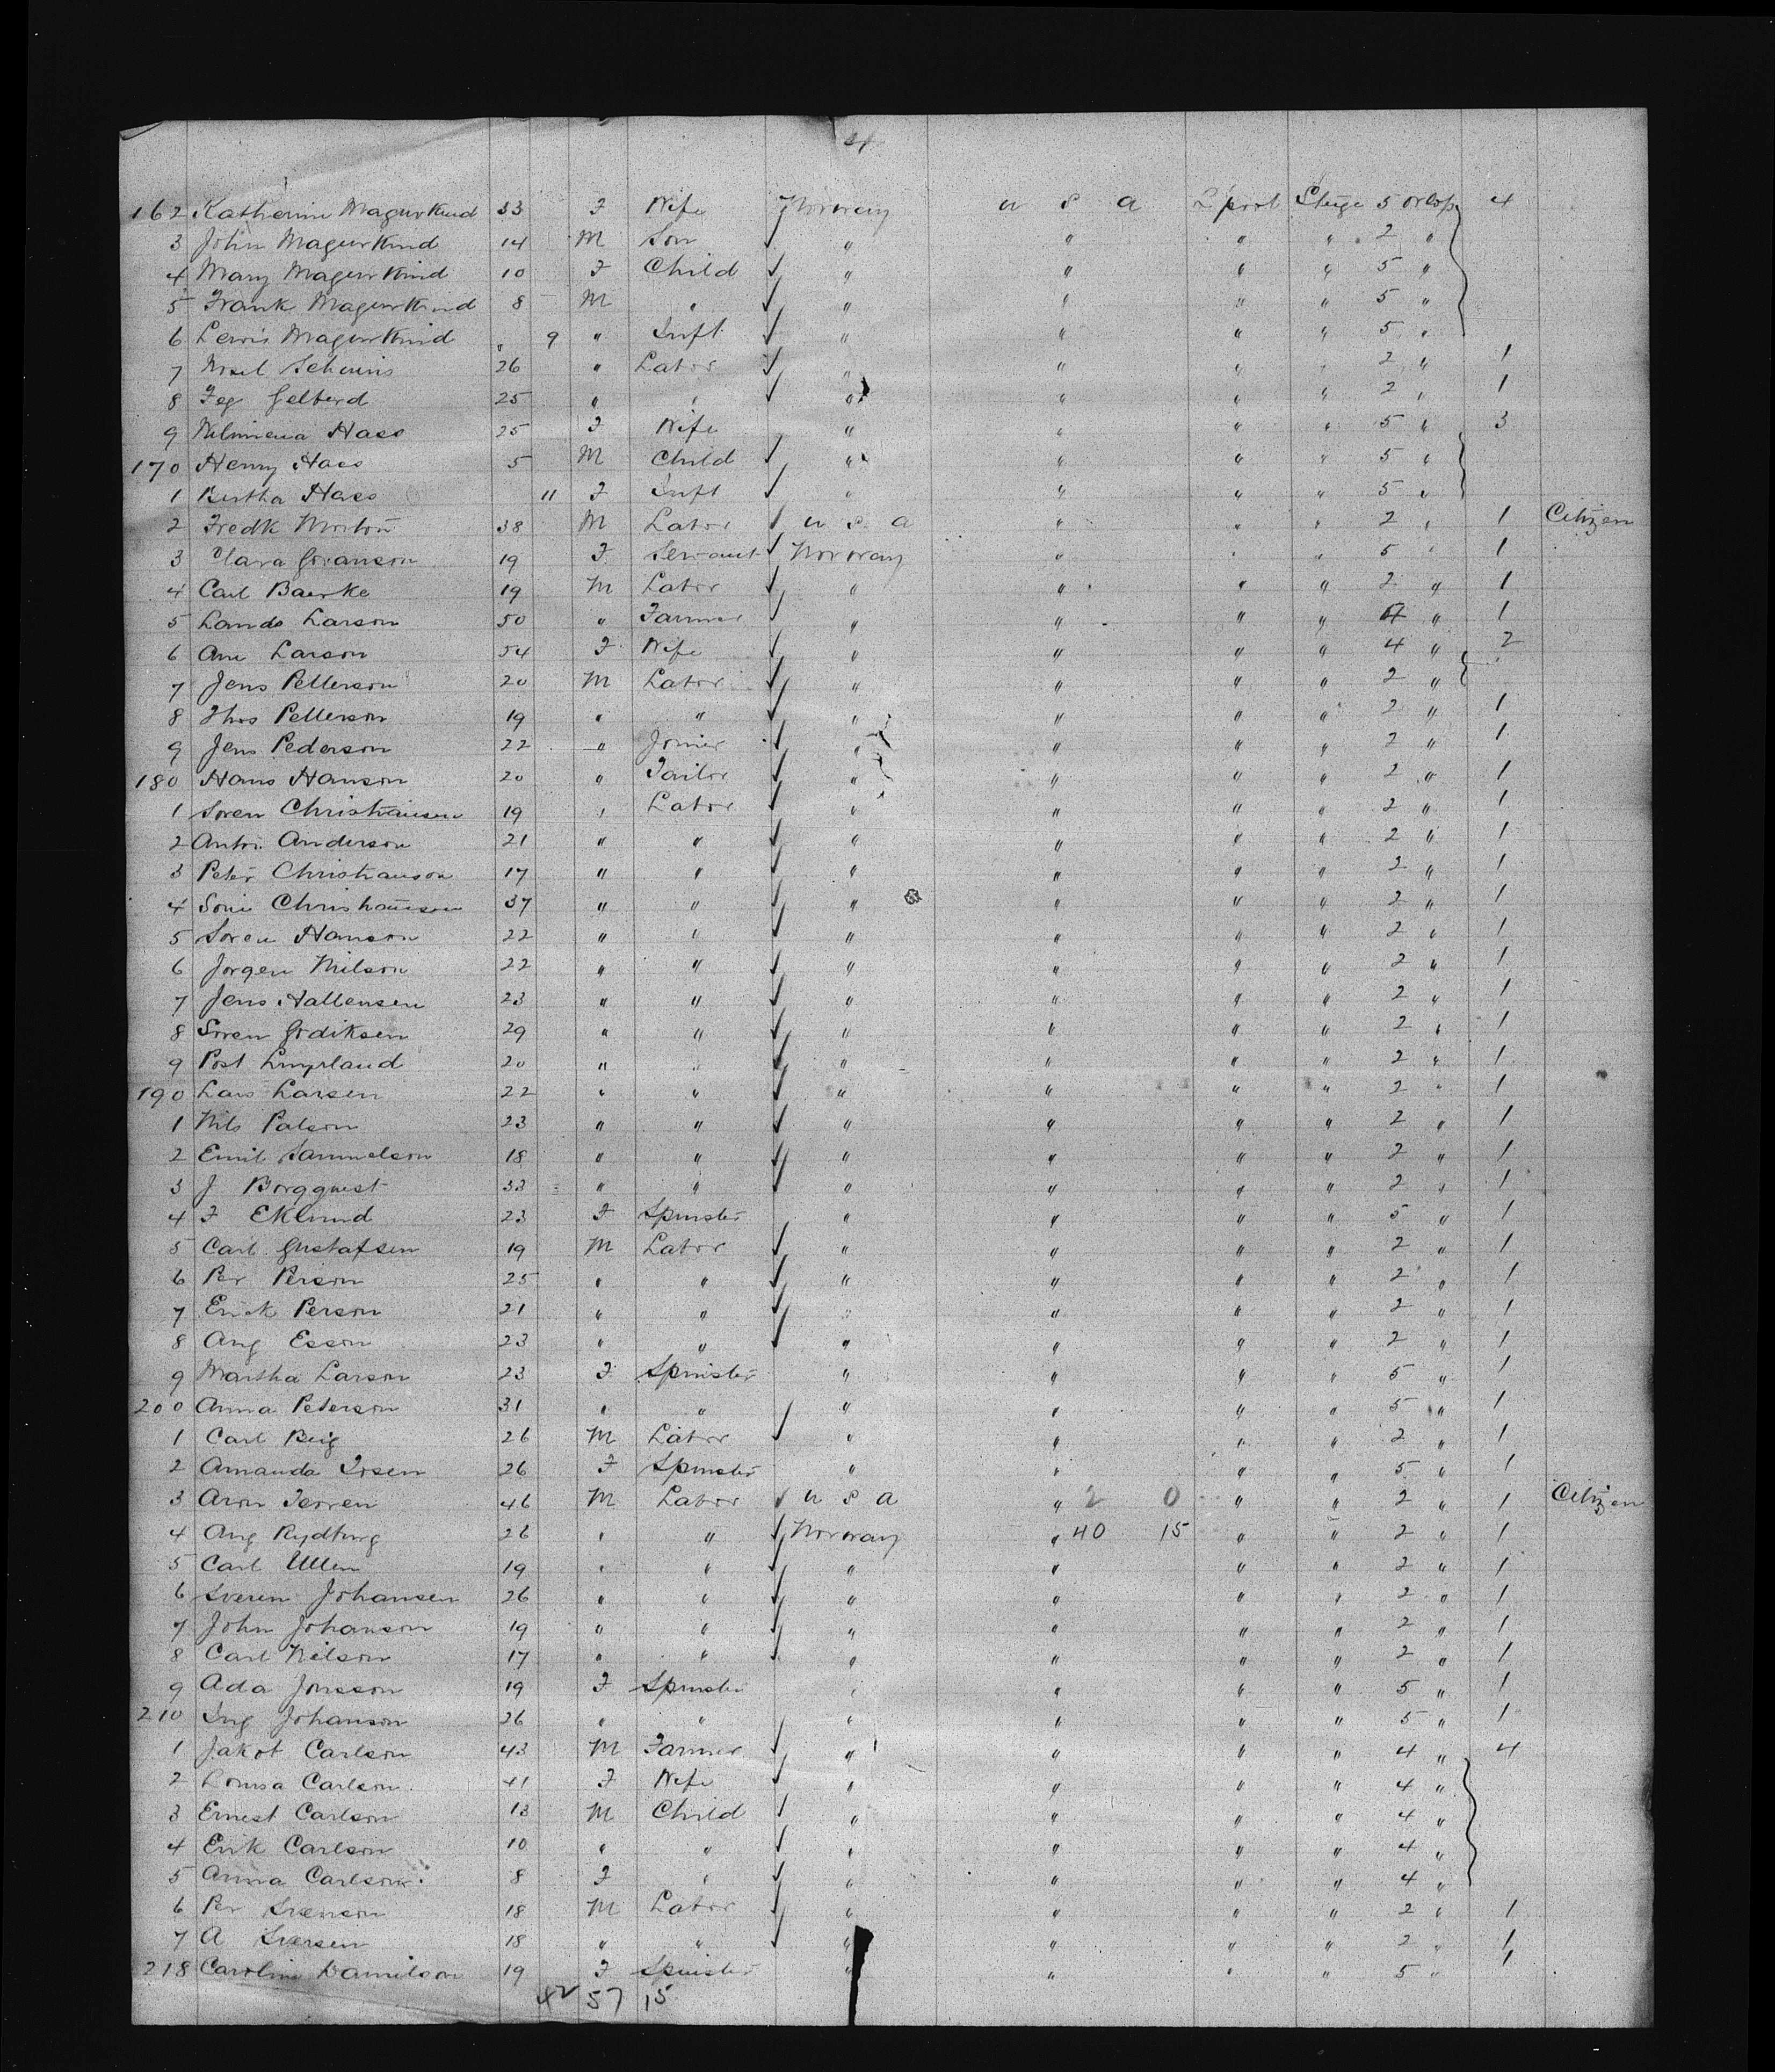 162 Katherine Magurkind 33 F Wife Norway U S A Lpool Stege 5 Orlop 4
3 John Magurkind 14 M Son " " " " 2 "
4 Mary Magurkind 10 F Child " " " " 5 "
5 Frank Magurkind 8 M " " " " " 5 "
6 Lewis Magurkind " 9 " Inft " " " " 5 "
7 26 " Labor " " " " 2 " 1
8 Gelberd 25 " " " " " " 2 " 1
9 Wilmiena Hass 25 F Wife " " " " 5 " 3
170 Henry Hass 5 M Child " " " " 5 "
1 Bertha Hass 11 F Inft " " " " 5 "
2 Fredk Morton 38 M Labor U S A " " " 2 " 1 Citizen
3 Clara Goranson 19 F Servant Norway " " " 5 " 1
4 Carl Baerke 19 M Labor " " " " 2 " 1
5 Lands Larson 50 " Farmer " " " " 4 " 1
6 Ane Larson 54 F Wife " " " " 4 " 2
7 Jens Petterson 20 M Labor " " " " 2 "
8 Thos Petterson 19 " " " " " " 2 " 1
9 Jens Pederson 22 " Joiner " " " " 2 " 1
180 Hans Hanson 20 " Tailor " " " " 2 " 1
1 Soren Christiansen 19 " Labor " " " " 2 " 1
2 Anton Anderson 21 " " " " " " 2 " 1
3 Peter Christianson 17 " " " " " " 2 " 1
4 Christiansen 37 " " " " " " 2 " 1
5 Soren Hanson 22 " " " " " " 2 " 1
6 Jorgen Nilson 22 " " " " " " 2 " 1
7 Jens Hallensen 23 " " " " " " 2 " 1
8 Soren Godiksen 29 " " " " " " 2 " 1
9 Post 20 " " " " " " 2 " 1
190 Lars Larsen 22 " " " " " " 2 " 1
1 Nils Palson 23 " " " " " " 2 " 1
2 Emil Samuelson 18 " " " " " " 2 " 1
3 J Borgquest 33 " " " " " " 2 " 1
4 F Eklund 23 F Spinster " " " " 5 " 1
5 Carl Gustafsen 19 M Labor " " " " 2 " 1
6 Per Person 25 " " " " " " 2 " 1
7 Erick Person 21 " " " " " " 2 " 1
8 Aug Esson 23 " " " " " " 2 " 1
9 Martha Larson 23 F Spinster " " " " 5 " 1
200 Anna Peterson 31 " " " " " " 5 " 1
1 Carl Beig 26 M Labor " " " " 2 " 1
2 Amanda Irsen 26 F Spinster " " " " 5 " 1
3 Aron Terren 46 M Labor U S A " 2 0 " " 2 " 1 Citizen
4 Aug Rydburg 26 " " Norway " 40 15 " " 2 " 1
5 Carl Ullen 19 " " " " " " 2 " 1
6 Johansen 26 " " " " " " 2 " 1
7 John Johanson 19 " " " " " " 2 " 1
8 Carl Nilson 17 " " " " " " 2 " 1
9 Ada Jonsson 19 F Spinster " " " " 5 " 1
210 Ing Johanson 26 " " " " " " 5 " 1
1 Jakob Carlson 43 M Farmer " " " " 4 " 4
2 Lousa Carlson 41 F Wife " " " " 4 "
3 Ernest Carlson 13 M Child " " " " 4 "
4 Erik Carlson 10 " " " " " " 4 "
5 Anna Carlson 8 F " " " " " 4 "
6 Per Svenson 18 M Labor " " " " 2 " 1
7 A Iversen 18 " " " " " " 2 " 1
218 Caroline Danielson 19 F Spinster " " " " 5 " 1
42 57 15